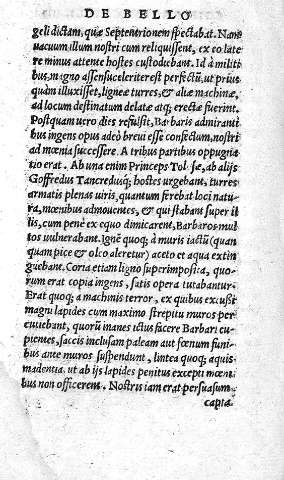 DE BELLO
geli dictam, quæ Septentrionem spectabat. Nam
vacuum illum nostri cum reliquissent, ex eo late
re minus attente hostes custodubant. Id à militi
bus, magno assensu celeriterest perfectũ, ut prius
quàm illuxisset, ligneæ turres, & aliæ machinæ,
ad locum destinatum delatæ atq; erectæ fuerint.
Postquam uero dies refulsit, Barbaris admiranti
bus ingens opus adeò breui esse confectum, nostri
ad mœnia successere. A tribus partibus oppugna
tio erat. Ab una enim Princeps Tolosæ, ab alijs
Goffredus Tancredusq; hostes urgebant, turres
armatis plenas uiris, quantum ferebat loci natu
ra, mœnibus admouentes, & qui stabant super il
lis, cum penè ex equo dimicarent, Barbaros mul
tos uulnerabant. Ignē quoq; à muris iactũ (quan
quam pice & olco aleretur) aceto et aqua extin
guebant. Coria etiam ligno superimposita, quo-
rum erat copia ingens, satis opera tutabantur.
Erat quoq; a machinis terror, ex quibus excussi
magni lapides cum maximo strepitu muros per
cutiebant, quorũ inanes ictus facere Barbari cu-
pientes, saccis inclusam paleam aut fœnum funi-
bus ante muros suspendunt, lintea quoq; aquis
madentia, ut ab ijs lapides penitus excepti mœni
bus non officerent. Nostris iam erat persuasum
capta